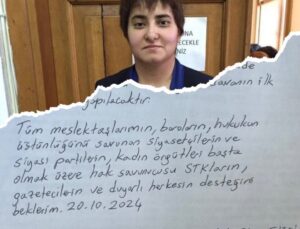 ilk
yapılacaktır.
Tüm meslektaşlarımın, baroların, hukukun
üstünlüğünü savunan siyasetçilerin ve
siyasi partilerin, kadın örgütleri başta
olmak üzere hak savunucusu STKların,
gazetecilerin ve duyarlı herkesin desteğini
beklerim. 20.10.2024